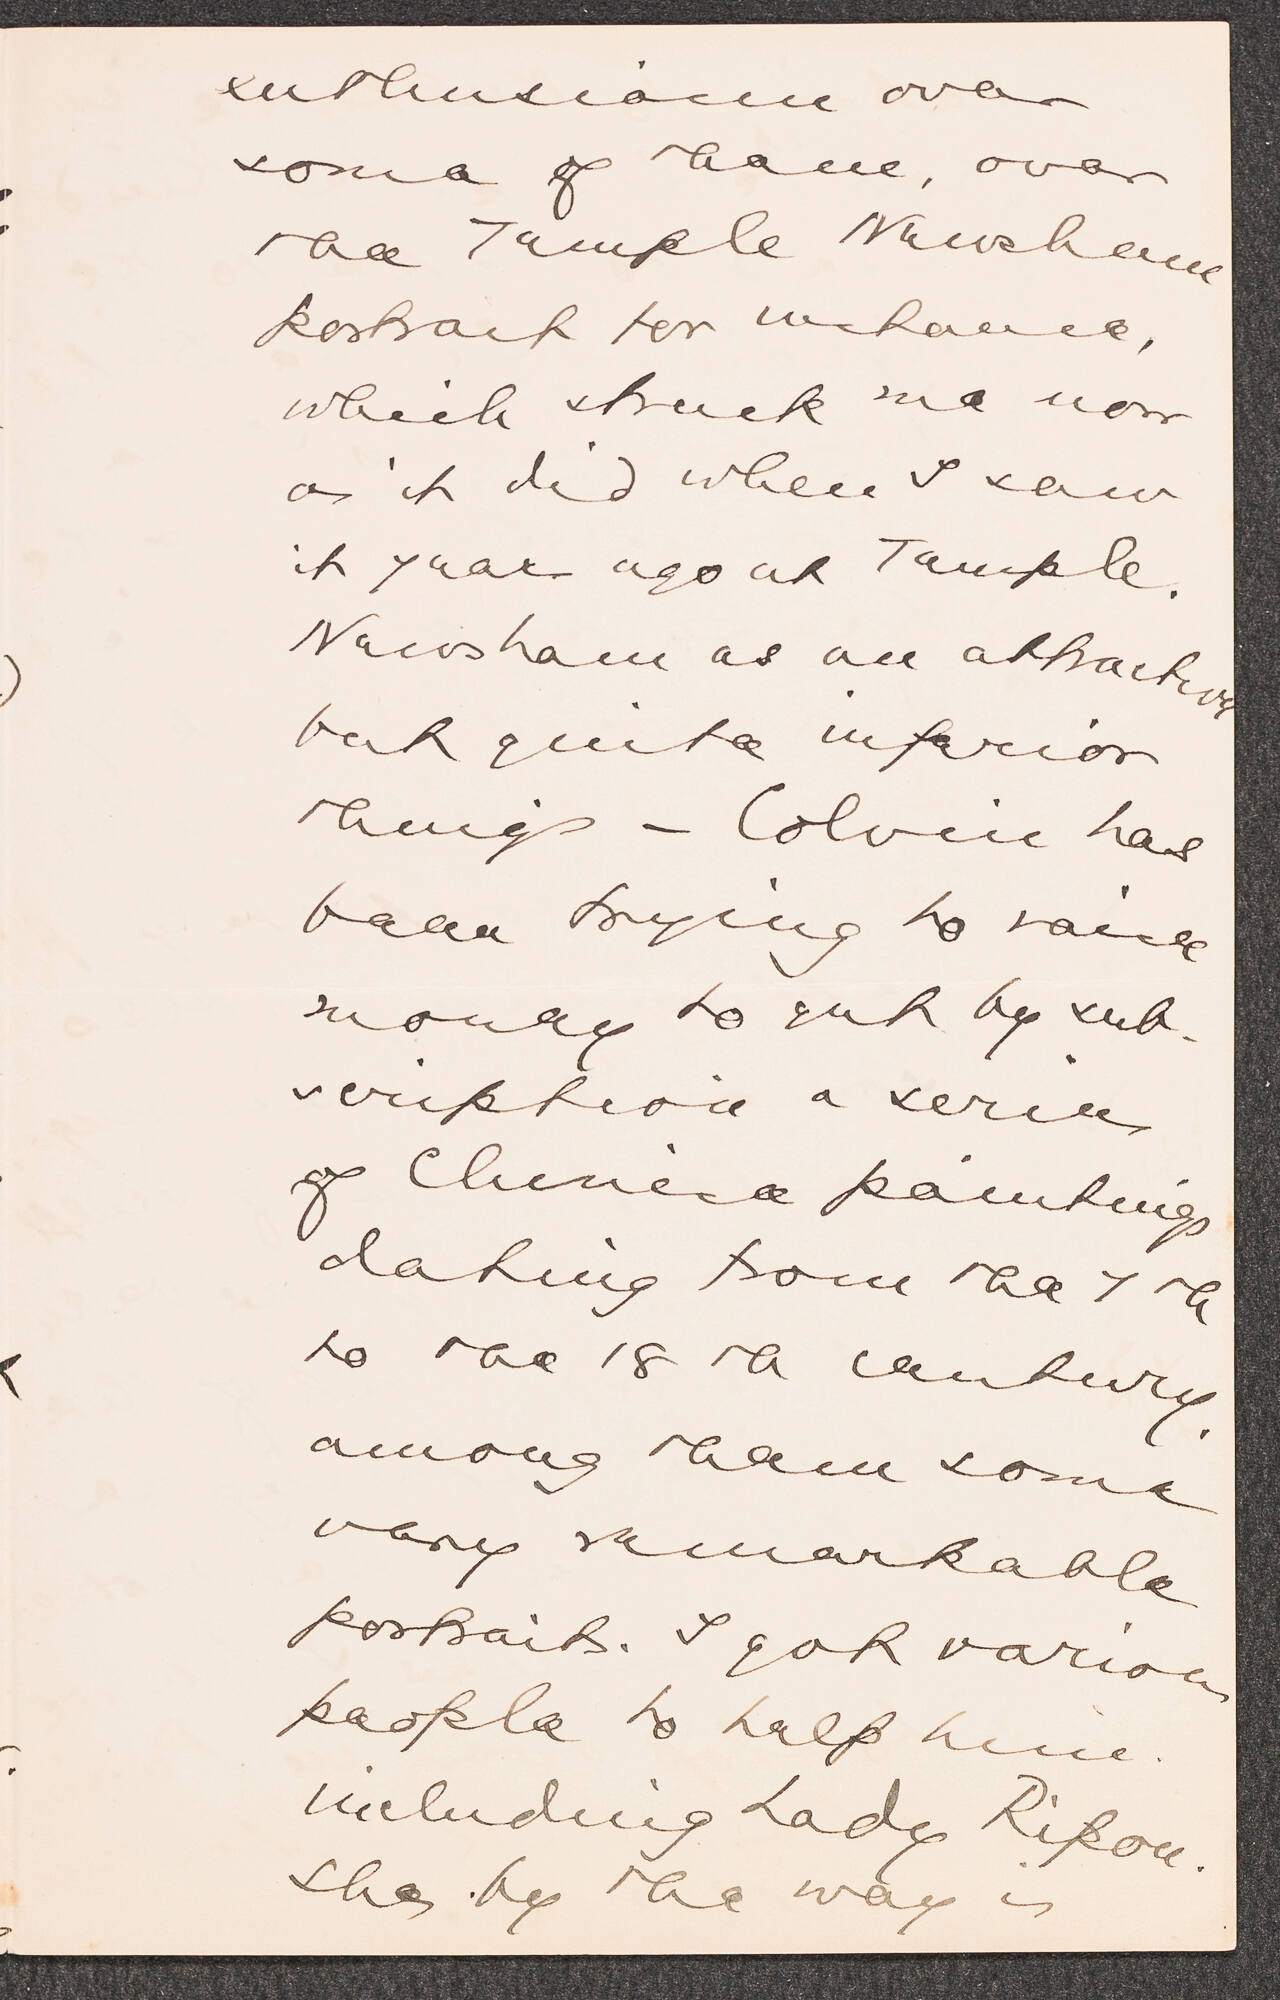 enthusiasm over
some of them, over
the Temple Newsham
portrait for instance,
which struck me now
as it did when I saw
it years ago at Temple.
Newsham as an attractive
but quite inferior
thing – Colvin has
been trying to raise
money to get by sub-
scription a series
of Chinese paintings
dating from the 7th
to the 18th century.
among them some
very remarkable
portraits. I got various
people to help him.
including Lady Ripon.
She, by the way is